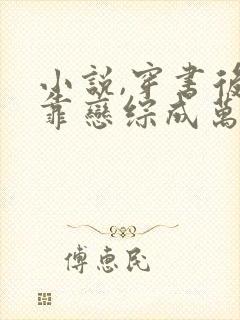 小說,穿書後
靠戀綜成萬
傅惠民